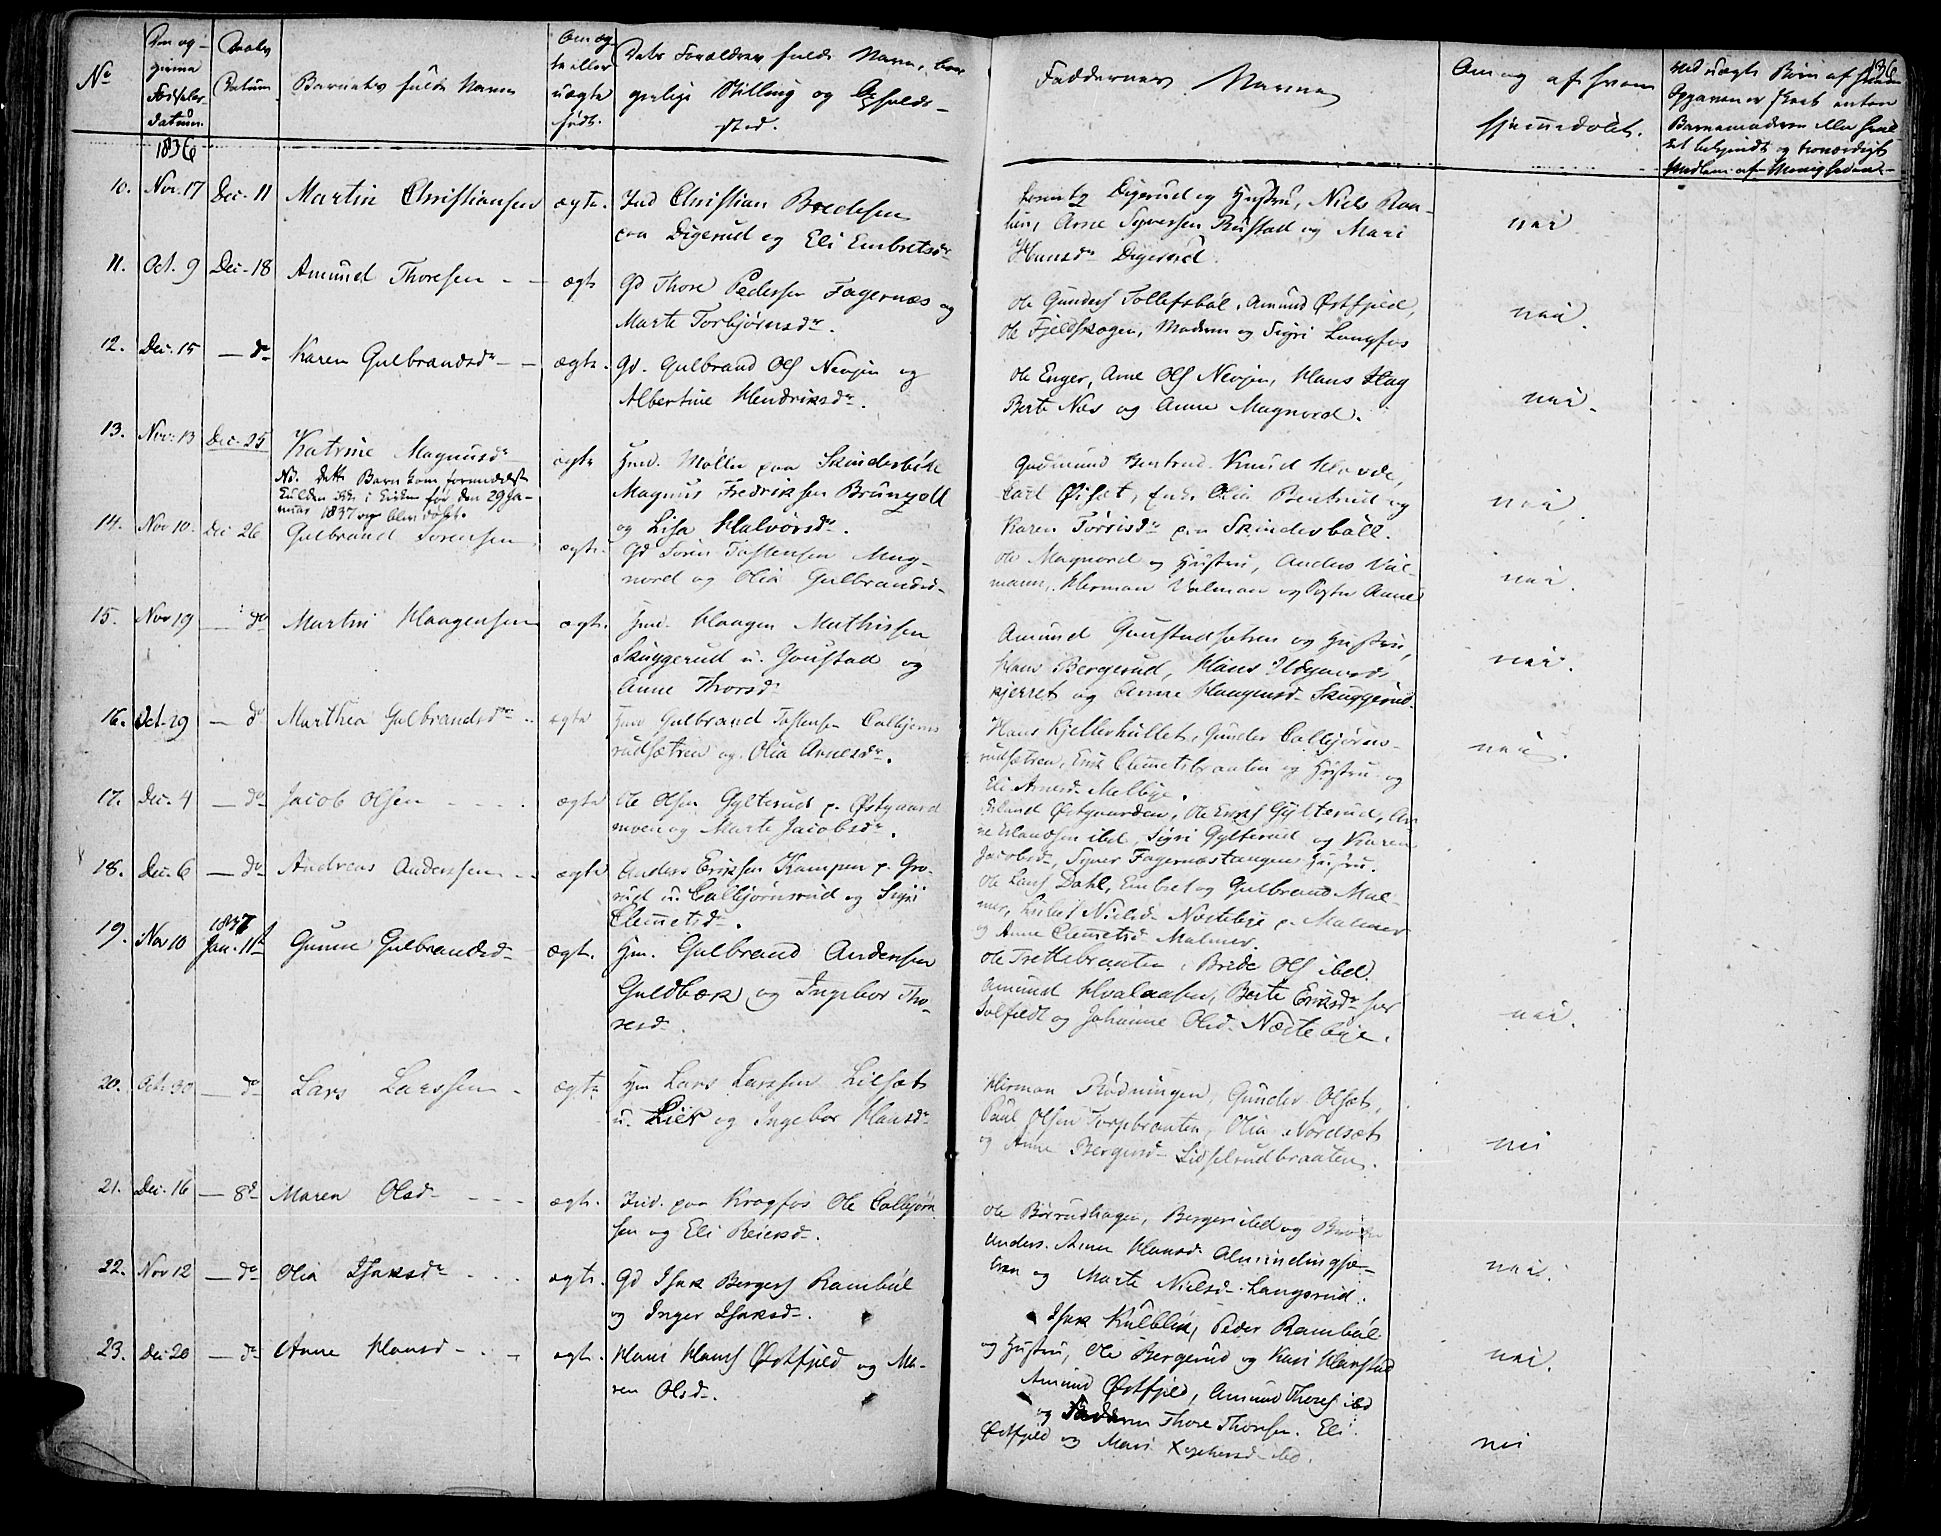 No
Den og-
givne
Fødsels-
datum.
Daabs
Datum
Barnets fulde Navn
Om æg-
te eller
uægte
født.
Dets Forældres fulde Navn, bor-
gerlige Stilling og Opholds-
sted.
Faddernes Navne
Om og af hvem
hjemmedøbt.
136
Ved uægte Børn af hvem
Opgaven er skeet enten
Barnemoderen eller hvil-
ket bekjendt og troværdigt
Medlem af Menigheden
1836
10. Nov. 17 Dec. 11 Martin Christiansen ægte. Ind Christian Bredesen
paa Digerud og Eli Embretsdr
Digerud og Hustru, Niels
Arne Syversen Rustad og Mari
Hansdr Digerud.
nei
11. Oct. 9 Dec. 18 Amund Thoresen ægte Gd Thore Pedersen Fagernæs og
Marte Torbjørnsdr.
Ole Gunders Tollefsbøl, Amund Østfjeld,
Ole Fjeldskogen, Madern og Sigri Langfos
nei.
12. Dec. 15 — do Karen Gulbrandsdr ægte. Gd. Gulbrand Ols Nevjen og
Albertine Hendriksdr.
Ole Enger, Arne Ols Nevjen, Hans Hag
Berte Næs og Anne Magnord.
nei.
13. Nov. 13 Dec. 25 Katrine Magnusdr
No. dette Barn kom formedelst
Kulden ikke i Kirken før den 29 Ja-
nuar 1837 og blev døbt.
ægte Hmd. Møller paa Skindesbøle
Magnus Fredriksen Brunzell
og Lisa Halvorsdr.
Gudmund Bentrud, Knud
Carl Øisæt, Enk. Olia Bentrud og
Karen paa Skindesbøll.
nei.
14. Nov 10. Dec 26 Gulbrand Sørensen ægte. Gd Søren Tostensen Mag-
nord og Olia Gulbrandsd.
Ole Magnord og Hustru, Anders Val-
mann, Herman Valman og Pigen Anne
nei.
15. Nov 19 — do Martin Haagensen ægte. Hmd. Haagen Mathissen
Skuggerud u. Goustad og
Anne Thorsd
Amund Goustadsetren og Hustru,
Hans Bergerud, Hans
kjerret og Anne Haagensd Skuggerud
nei.
16. Oct. 29 — do Marthea Gulbrandsdr ægte Hmd Gulbrand Tostensen Colbjørns
rudsætren og Olia Arnesdr.
Hans Kjellerhullet, Gunder Colbjørns-
rudsætren, Erik Clemetsbraaten og Hustru og
Eli Arnesd Melbye.
nei.
17. Dec. 4 — do Jacob Olsen ægte Ole Olsen Gylterud p. Østgaard
moen og Marte Jacobsdr.
Erland Østgaarden, Ole Eriks Gylterud, Ar-
ne Erlandsen ibd, Sigri Gylterud og Karen
Jacobsd, Syver Fagernæstangens Hustru.
18. Dec. 6 — do Andreas Anderssen ægte Anders Eriksen Kampen p. Gro-
rud u. Colbjørnsrud og Sigri
Clemetsdr.
Ole Lars Dahl, Embret og Gulbrand Mal-
mer, Nielsd Næstebye p. Malmer
og Anne Clemetsd Malmer.
1837
19. Nov 10 Jan. 11t Gunne Gulbrandsd ægte. Hm. Gulbrand Andersen
Guldbæk og Ingebor Tho-
resd.
Ole Trettebraaten, Brede Ols ibd.
Amund Hvalaasen, Berte Eriksdr
og Johanne Olsd Næstebye.
nei.
20. Oct. 30 — do Lars Larssen ægte Hm Lars Larssen Lilsæt
u. Lier og Ingebor Hansdr
Herman Rødningen, Gunder Olsæt,
Paul Olsen Torpbraaten, Olia Nordsæt
og Anne Bergersd Lidselrudbraaten.
nei
21. Dec. 16 — 8d Maren Olsd ægte. Ind. paa Kragfos Ole Colbjørn
sen og Eli Reiersd.
Ole Børrudhagen, Berger ibd og
Anders. Anne Hansd Almindingsæ-
tren og Marte Nielsd Langerud.
nei.
22. Nov 12 — do Olia Isaksdr ægte. Gd Isak Bergers Rambøl
og Inger Isaksd.
Isak Kulblik, Peder Rambøl
og Hustru, Ole Bergerud og Kari Harstad
nei.
23. Dec 20 — do Anne Hansd ægte. Hans Hans Østfjeld og Ma-
ren Olsd.
Amund Østfjeld, Amund Thores ibd
og Thore Thoresen. Eli
Østfjeld og Mari ibd.
nei